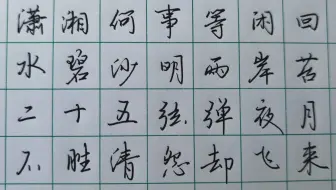 潇湘何事等闲回
水碧沙明两岸苔
二十五弦弹夜月
不胜清怨却飞来